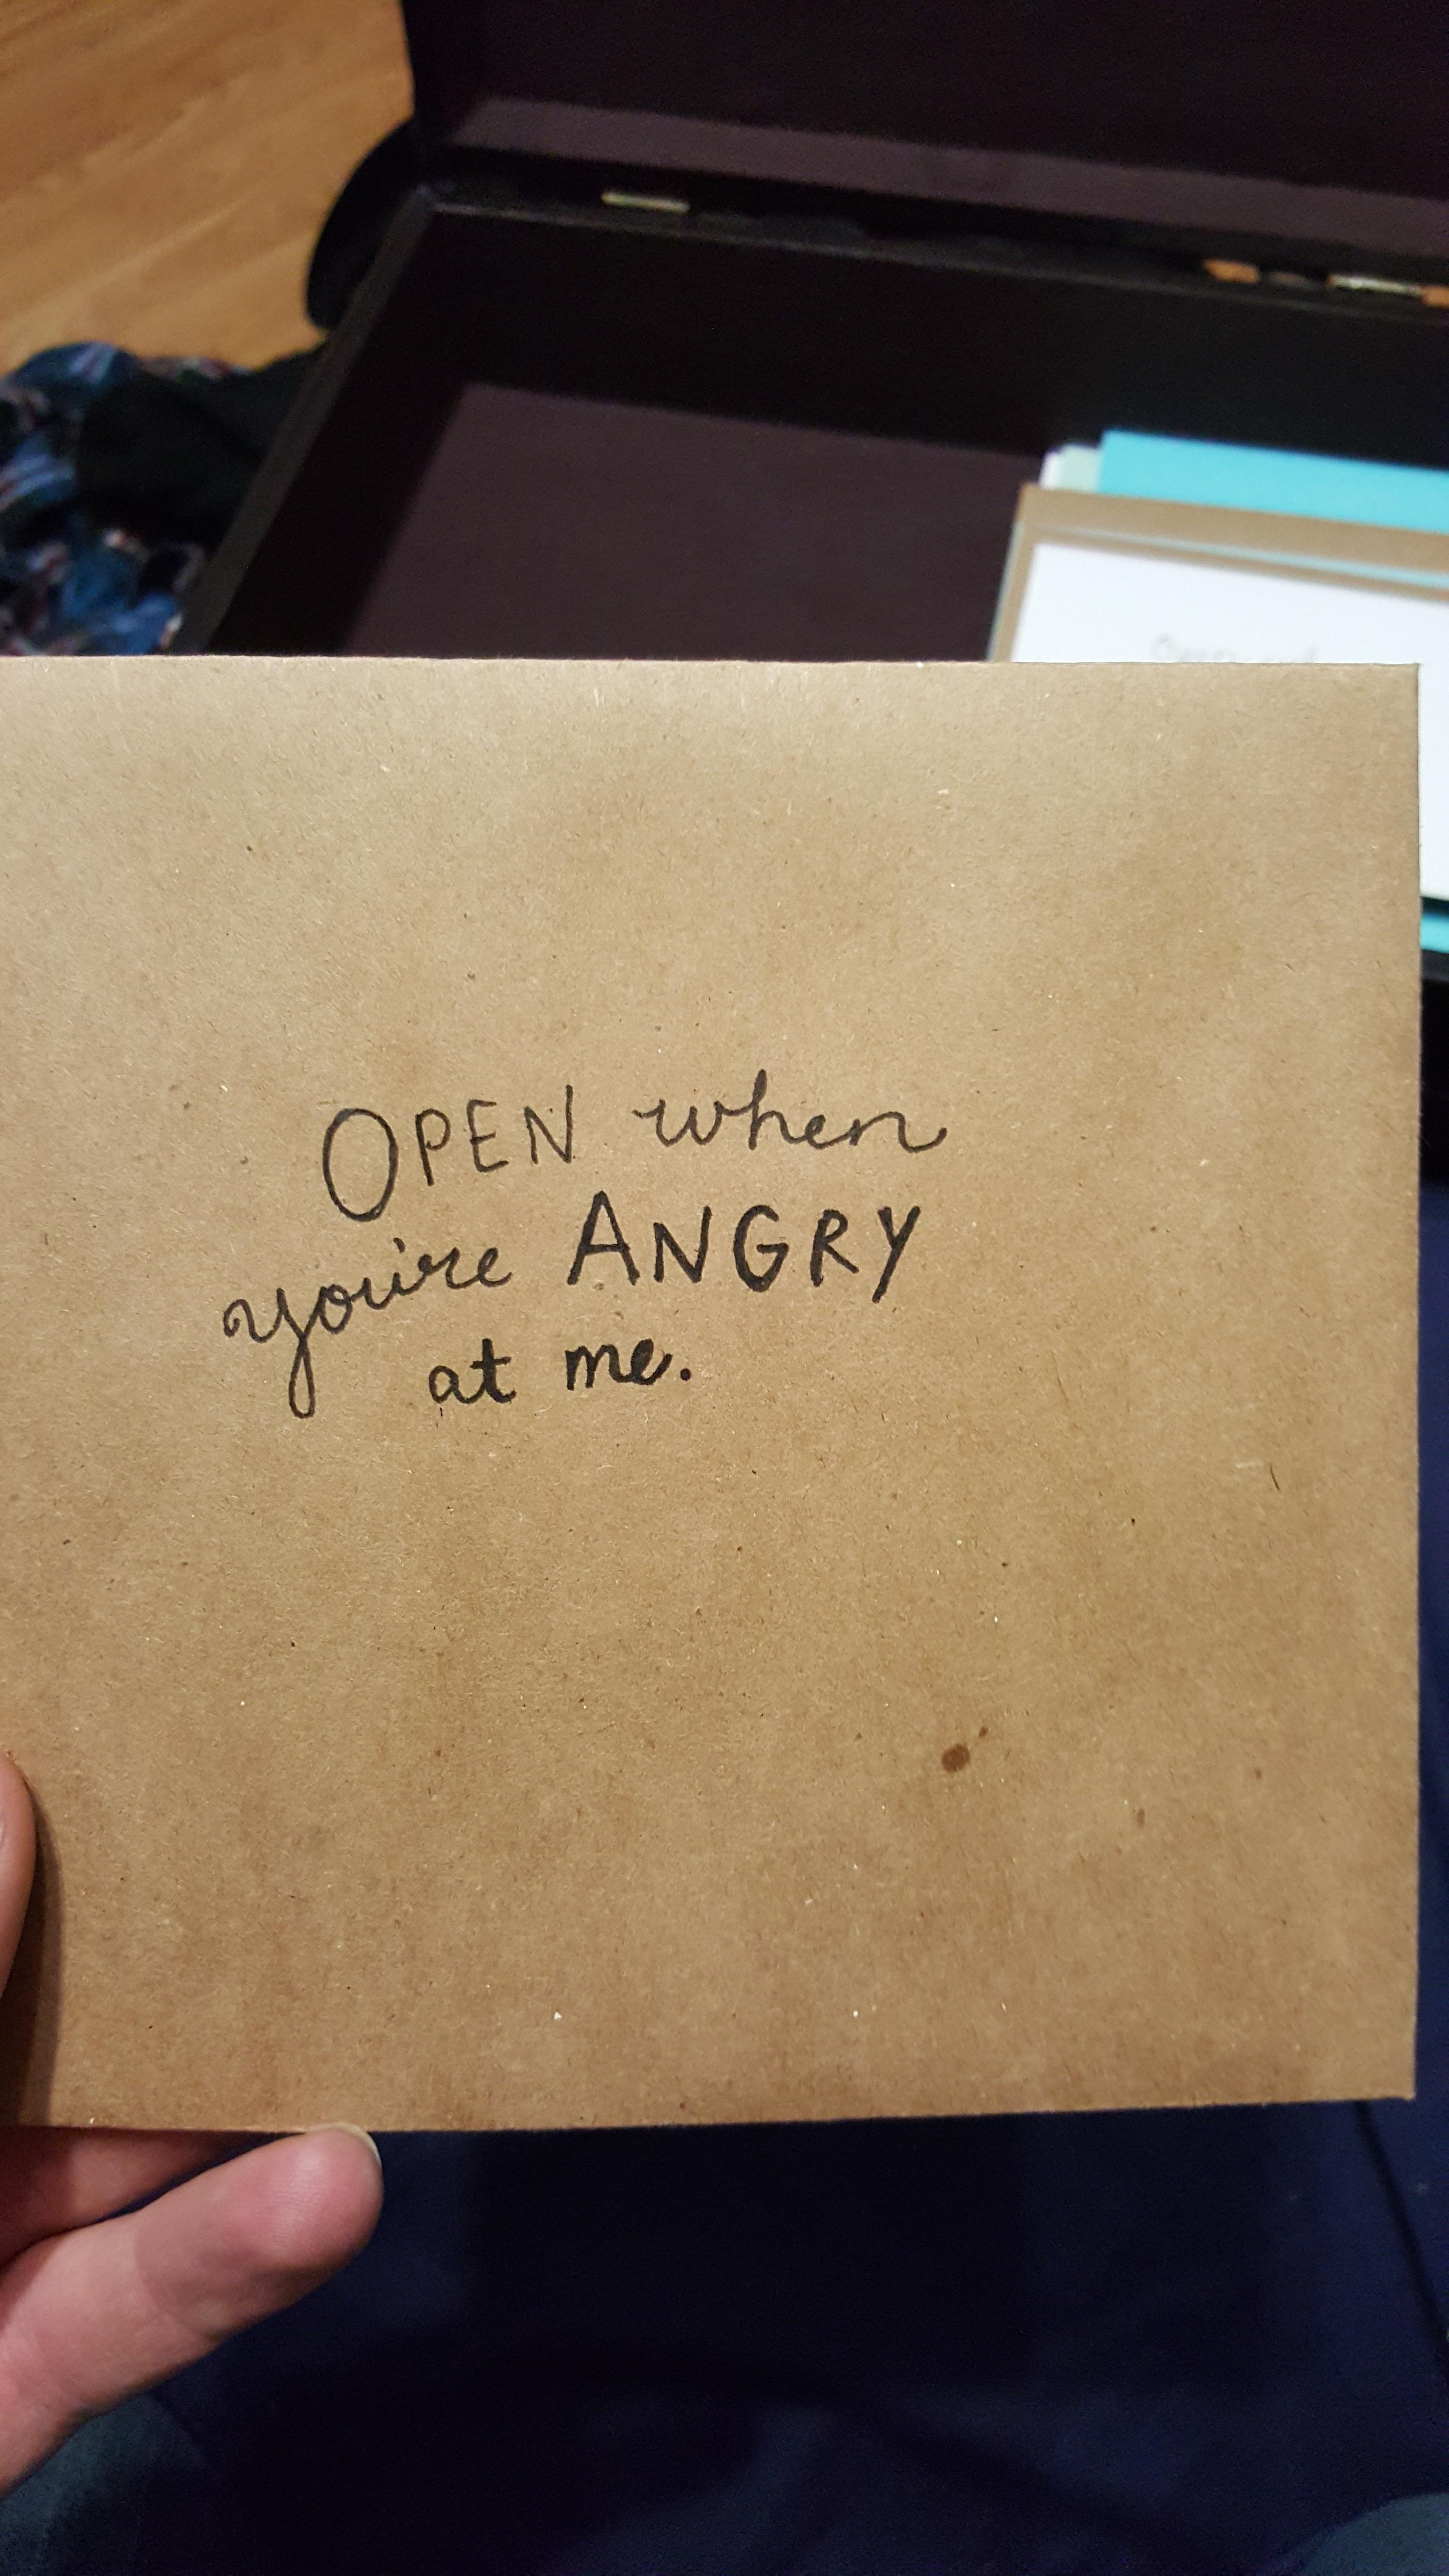 OPEN when
you're ANGRY
at me.